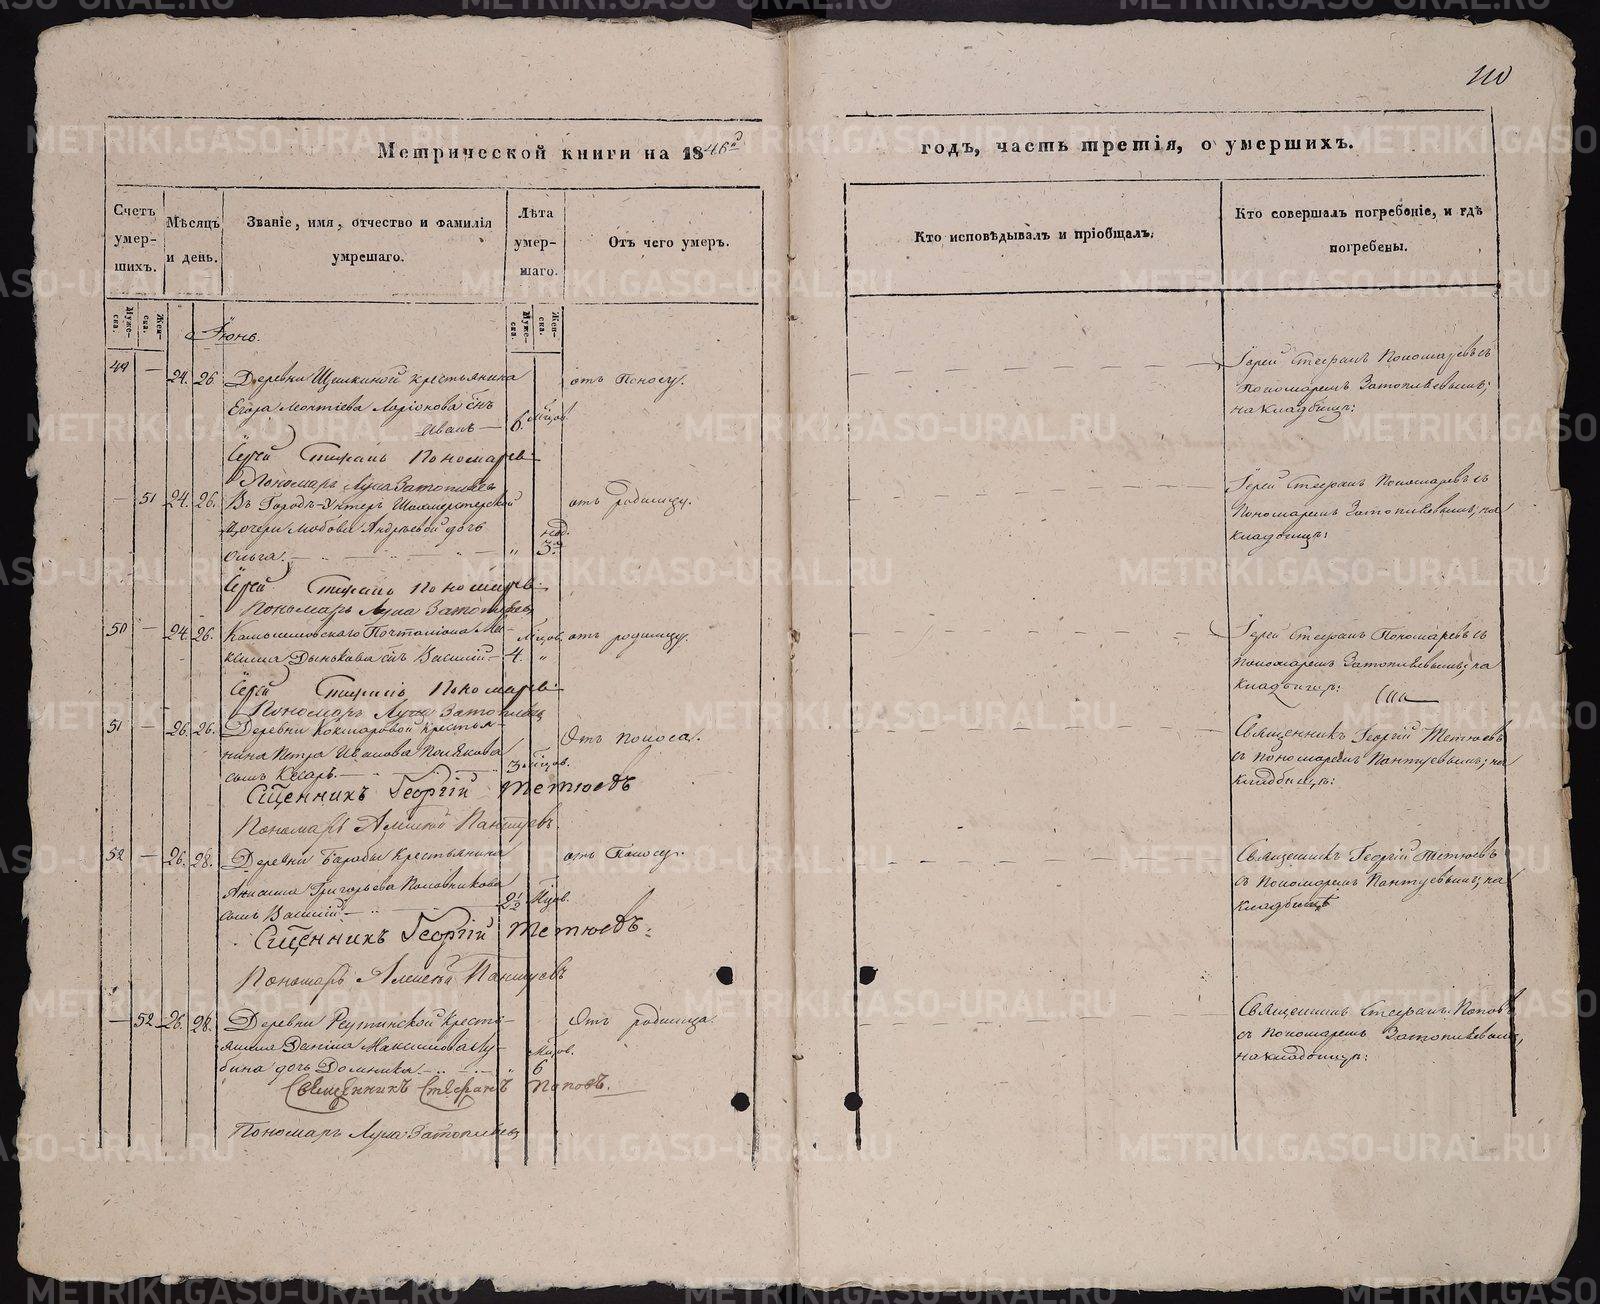 110
Метрической книги на 1846й
годъ, часть третія, о умершихъ.
Счетъ умер-шихъ.
Мѣсяцъ и день.
Званіе, имя, отчество и фамилія умрешаго.
Лѣта умер-шаго.
Отъ чего умеръ.
Кто исповѣдывалъ и пріобщалъ.
Кто совершалъ погребеніе, и гдѣ погребены.
Муже-ска.
Жен-ска.
Муже-ска.
Жен-ска.
Іюнь.
49 — 24. 26 Деревни крестьянина отъ Поносу. Іерей Стефанъ Пономаревъ съ
Егора Леонтіева Ларіонова сйъ Пономаремъ Затопляевымъ;
Иванъ — 6. Мцов. на кладбищѣ:
Іерей Стефанъ Пономаревъ
Пономарь Лука Затопляевъ
— 51 24. 26. отъ родимцу. Іерей Стефанъ Пономаревъ съ
дочери Любови Андреевой дочь нед. Пономаремъ Затопляевымъ; на
Ольга. — „ 3. кладбищѣ:
Іерей Стефанъ Пономаревъ
Пономарь Лука Затопляевъ
50 — 24. 26. Камышловскаго Почталіона Ма- Мцов. отъ родимцу. Іерей Стефанъ Пономаревъ съ
ксима сйъ Василій — 4. „ пономаремъ Затопляевымъ; на
кладбищѣ:
Іерей Стефанъ Пономаревъ
Пономарь Лука Затопляевъ
51 — 26. 26. Деревни крестья- Отъ поноса. Священникъ Георгій Тетюевъ
нина Петра Иванова Полякова 3 Мцов. съ пономаремъ Пантуевымъ; на
сынъ Кесарь. — кладбищѣ:
Сщенникъ Георгій Тетюевъ
Пономарь Алексѣй Пантуевъ.
52 — 26. 28. Деревни Барабы Крестьянина отъ Поносу. Священникъ Георгій Тетюевъ
Анисима Григорьева Половникова 2½ Мцов. съ пономаремъ Пантуевымъ; на
сынъ Василій — кладбищѣ
Сщенникъ Георгій Тетюевъ.
Пономарь Алексѣй Пантуевъ
— 52 26. 28. Деревни Реутинской Кресть- Отъ родимца. Священникъ Стефанъ Поповъ
янина Даніила Максимова Мцов. съ пономаремъ Затопляевымъ,
дочь Домника. — 6 на кладбищѣ:
Священникъ Стефанъ Поповъ.
Пономарь Лука Затопляевъ
METRIKI.GASO-URAL.RU